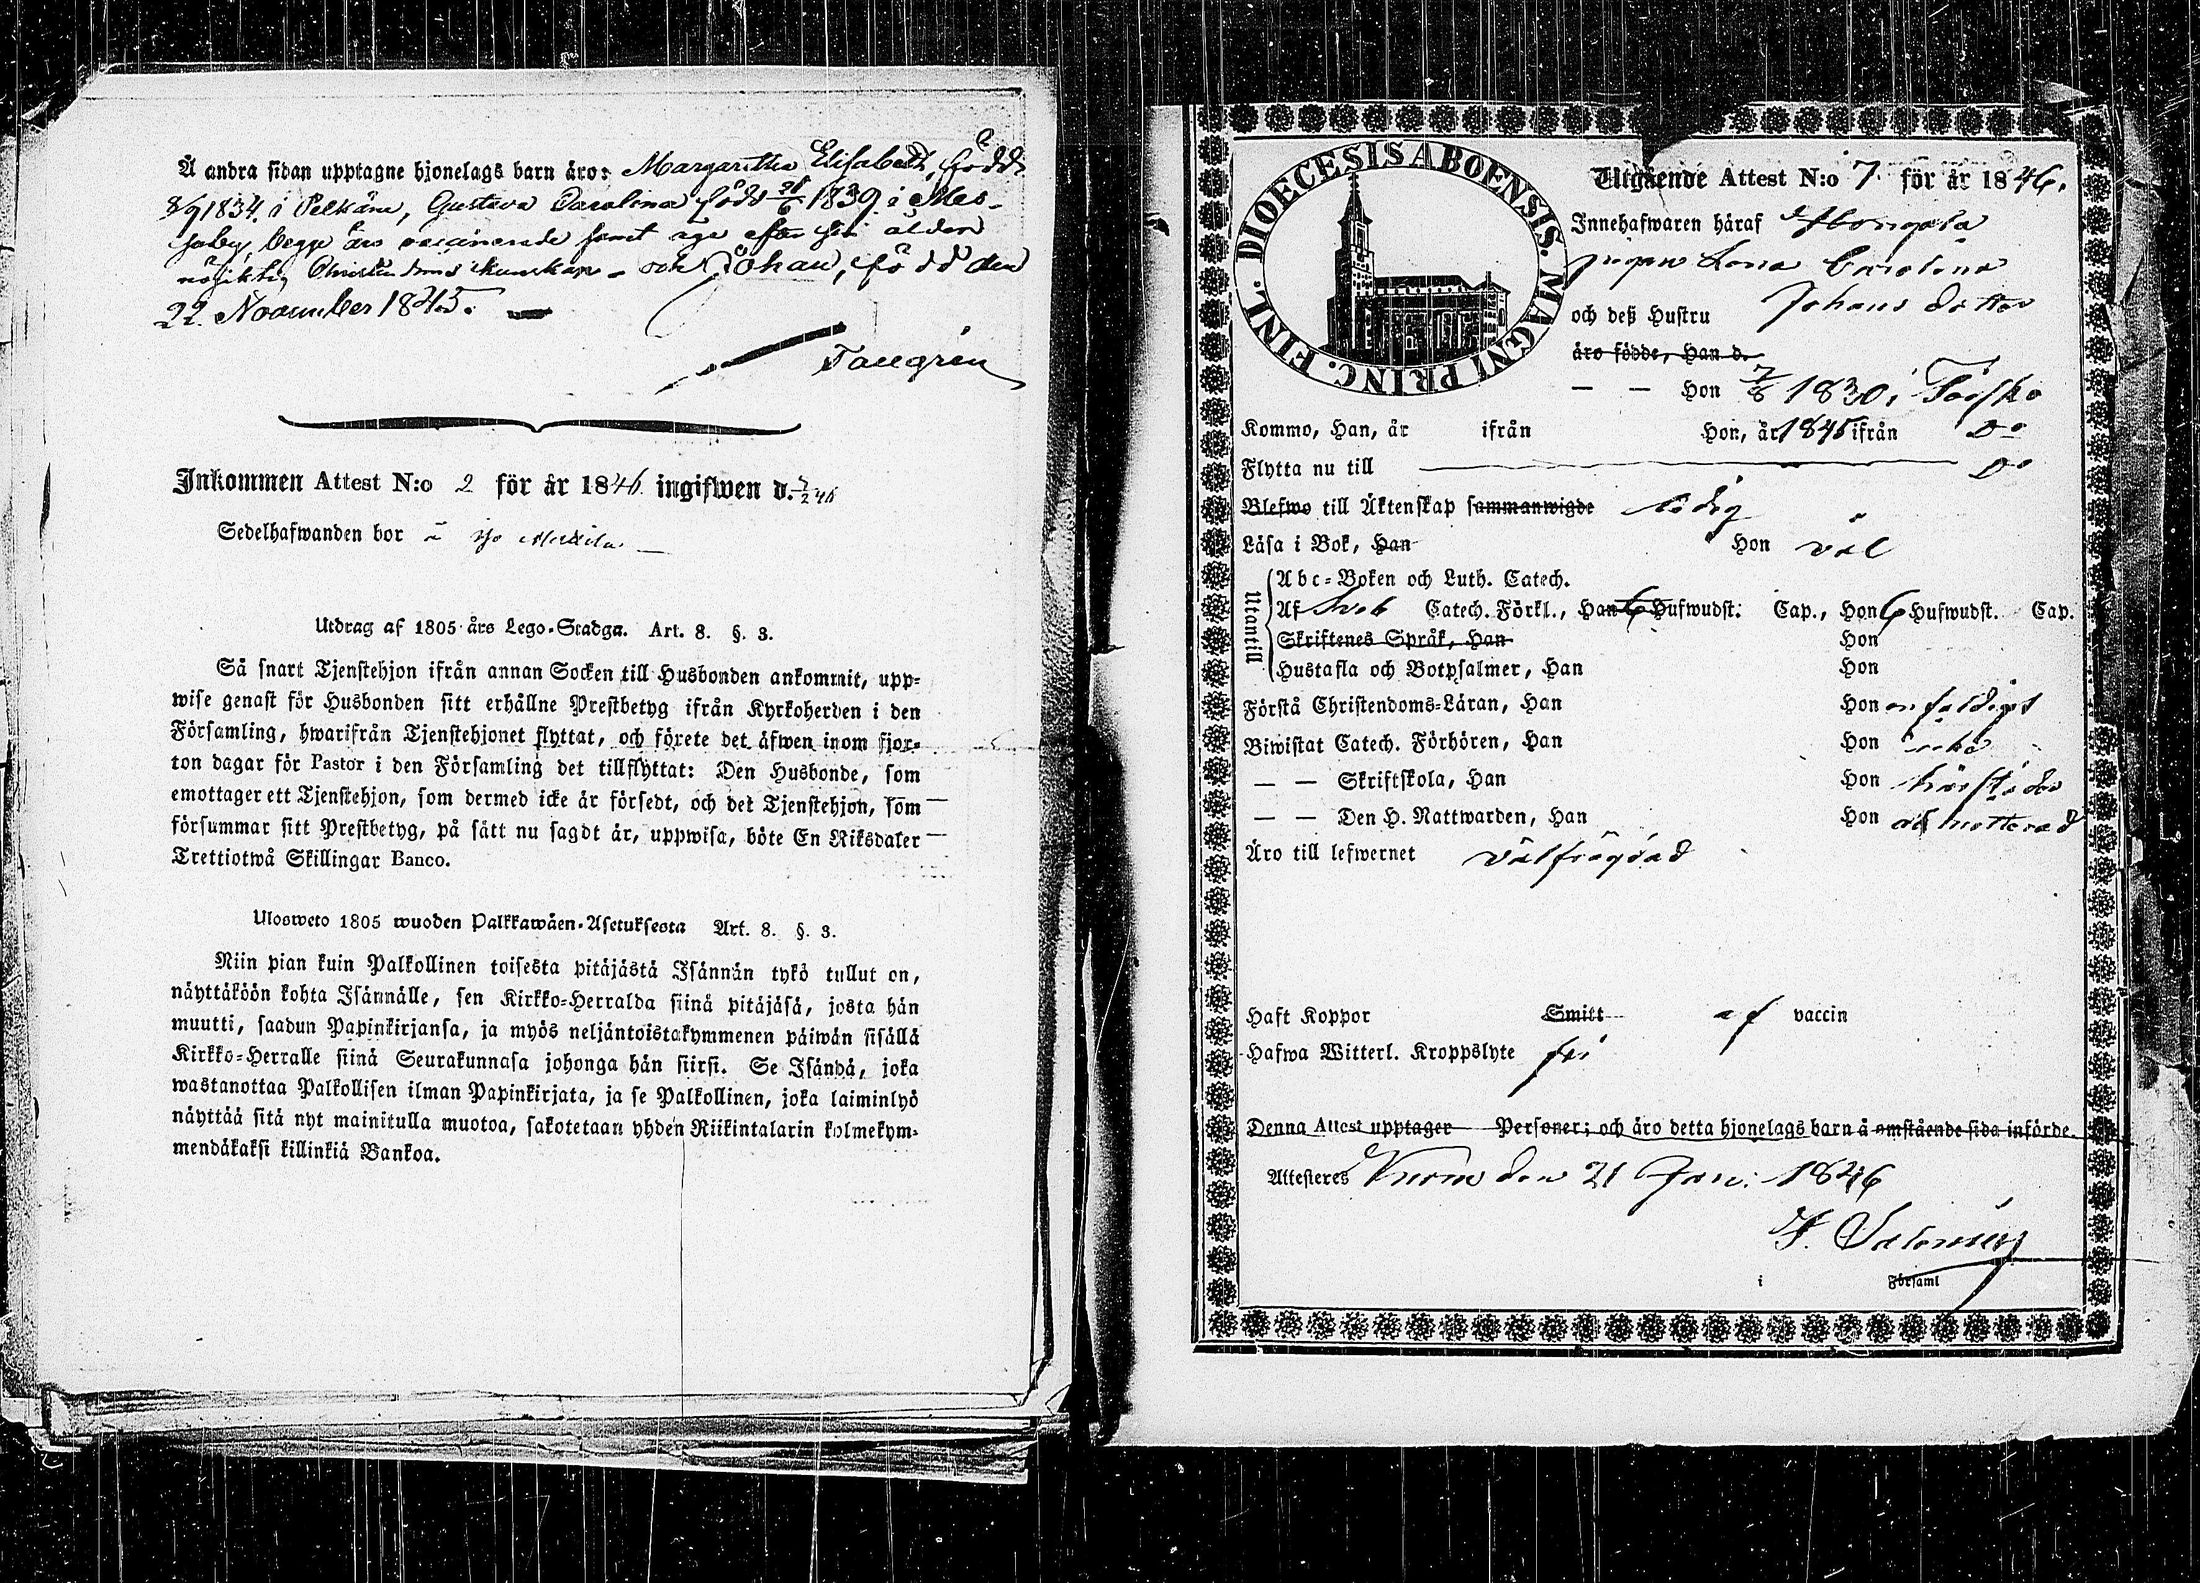 Å andra sidan upptagne hjonelags barn äro: Margaretha Elisabeth, född
8/9 1834. i Pelkäne, Gustava Carolina född 1839 i Mes-
suby, begge äro vaccinerade samt äga efter sin ålder
nöjaktig Christendoms kunskap - och Johan, född den
22 November 1845.
Tallgrén
Inkommen Attest N:o 2 för år 1846 ingifwen d. 5/2 46
Sedelhafwanden bor å
Utdrag af 1805 års Lego-Stadga. Art. 8. §. 3.
Så snart Tjenstehjon ifrån annan Socken till Husbonden ankommit, upp-
wise genast för Husbonden sitt erhållne Prestbetyg ifrån Kyrkoherden i den
Församling, hwarifrån Tjenstehjonet flyttat, och förete det äfwen inom fjor-
ton dagar för Pastor i den Församling det tillflyttat: Den Husbonde, som
emottager ett Tjenstehjon, som dermed icke är försedt, och det Tjenstehjon, som
försummar sitt Prestbetyg, på sätt nu sagdt är, uppwisa, böte En Riksdaler
Trettiotwå Skillingar Banco.
Ulosweto 1805 wuoden Palkkawäen-Asetuksesta Art. 8. §. 3.
Niin pian kuin Palkollinen toisesta pitäjästä Isännän tykö tullut on,
näyttäköön kohta Isännälle, sen Kirkko-Herralda siinä pitäjäsä, josta hän
muutti, saadun Papinkirjansa, ja myös neljäntoistakymmenen päiwän sisällä
Kirkko-Herralle siinä Seurakunnasa johonga hän siirsi. Se Isändä, joka
wastanottaa Palkollisen ilman Papinkirjata, ja se Palkollinen, joka laiminlyö
näyttää sitä nyt mainitulla muotoa, sakotetaan yhden Riikintalarin kolmekym-
mendäkaksi killinkiä Bankoa.
DIOECESIS ABOENSIS. MAGNI PRINC. FINL.
Utgående Attest N:o 7 för år 1846.
Innehafwaren häraf
pigan Lena Carolina
och deß Hustru Johans dotter
äro födde, Han d.
— — Hon 7/8 1830 i
Kommo, Han, år ifrån Hon, år 1845 ifrån Do
Flytta nu till Do
Blefwo till Äktenskap sammanwigde ledig
Läsa i Bok, Han Hon väl
Utantill
Abc-Boken och Luth. Catech.
Af Sveb Catech. Förkl., Han 6 Hufwudst. Cap., Hon 6 Hufwudst. Cap.
Skriftenes Språk, Han Hon
Hustafla och Botpsalmer, Han Hon
Förstå Christendoms-Läran, Han Hon enfaldigt
Biwistat Catech. Förhören, Han Hon
— — Skriftskola, Han Hon
— — Den H. Nattwarden, Han Hon admitterad
Äro till lefwernet välfrägdad
Haft Koppor Smitt af vaccin
Hafwa Witterl. Kroppslyte fri
Denna Attest upptager Personer; och äro detta hjonelags barn å omstående sida införde.
Attesteres den 21 Jan: 1846
i Församl